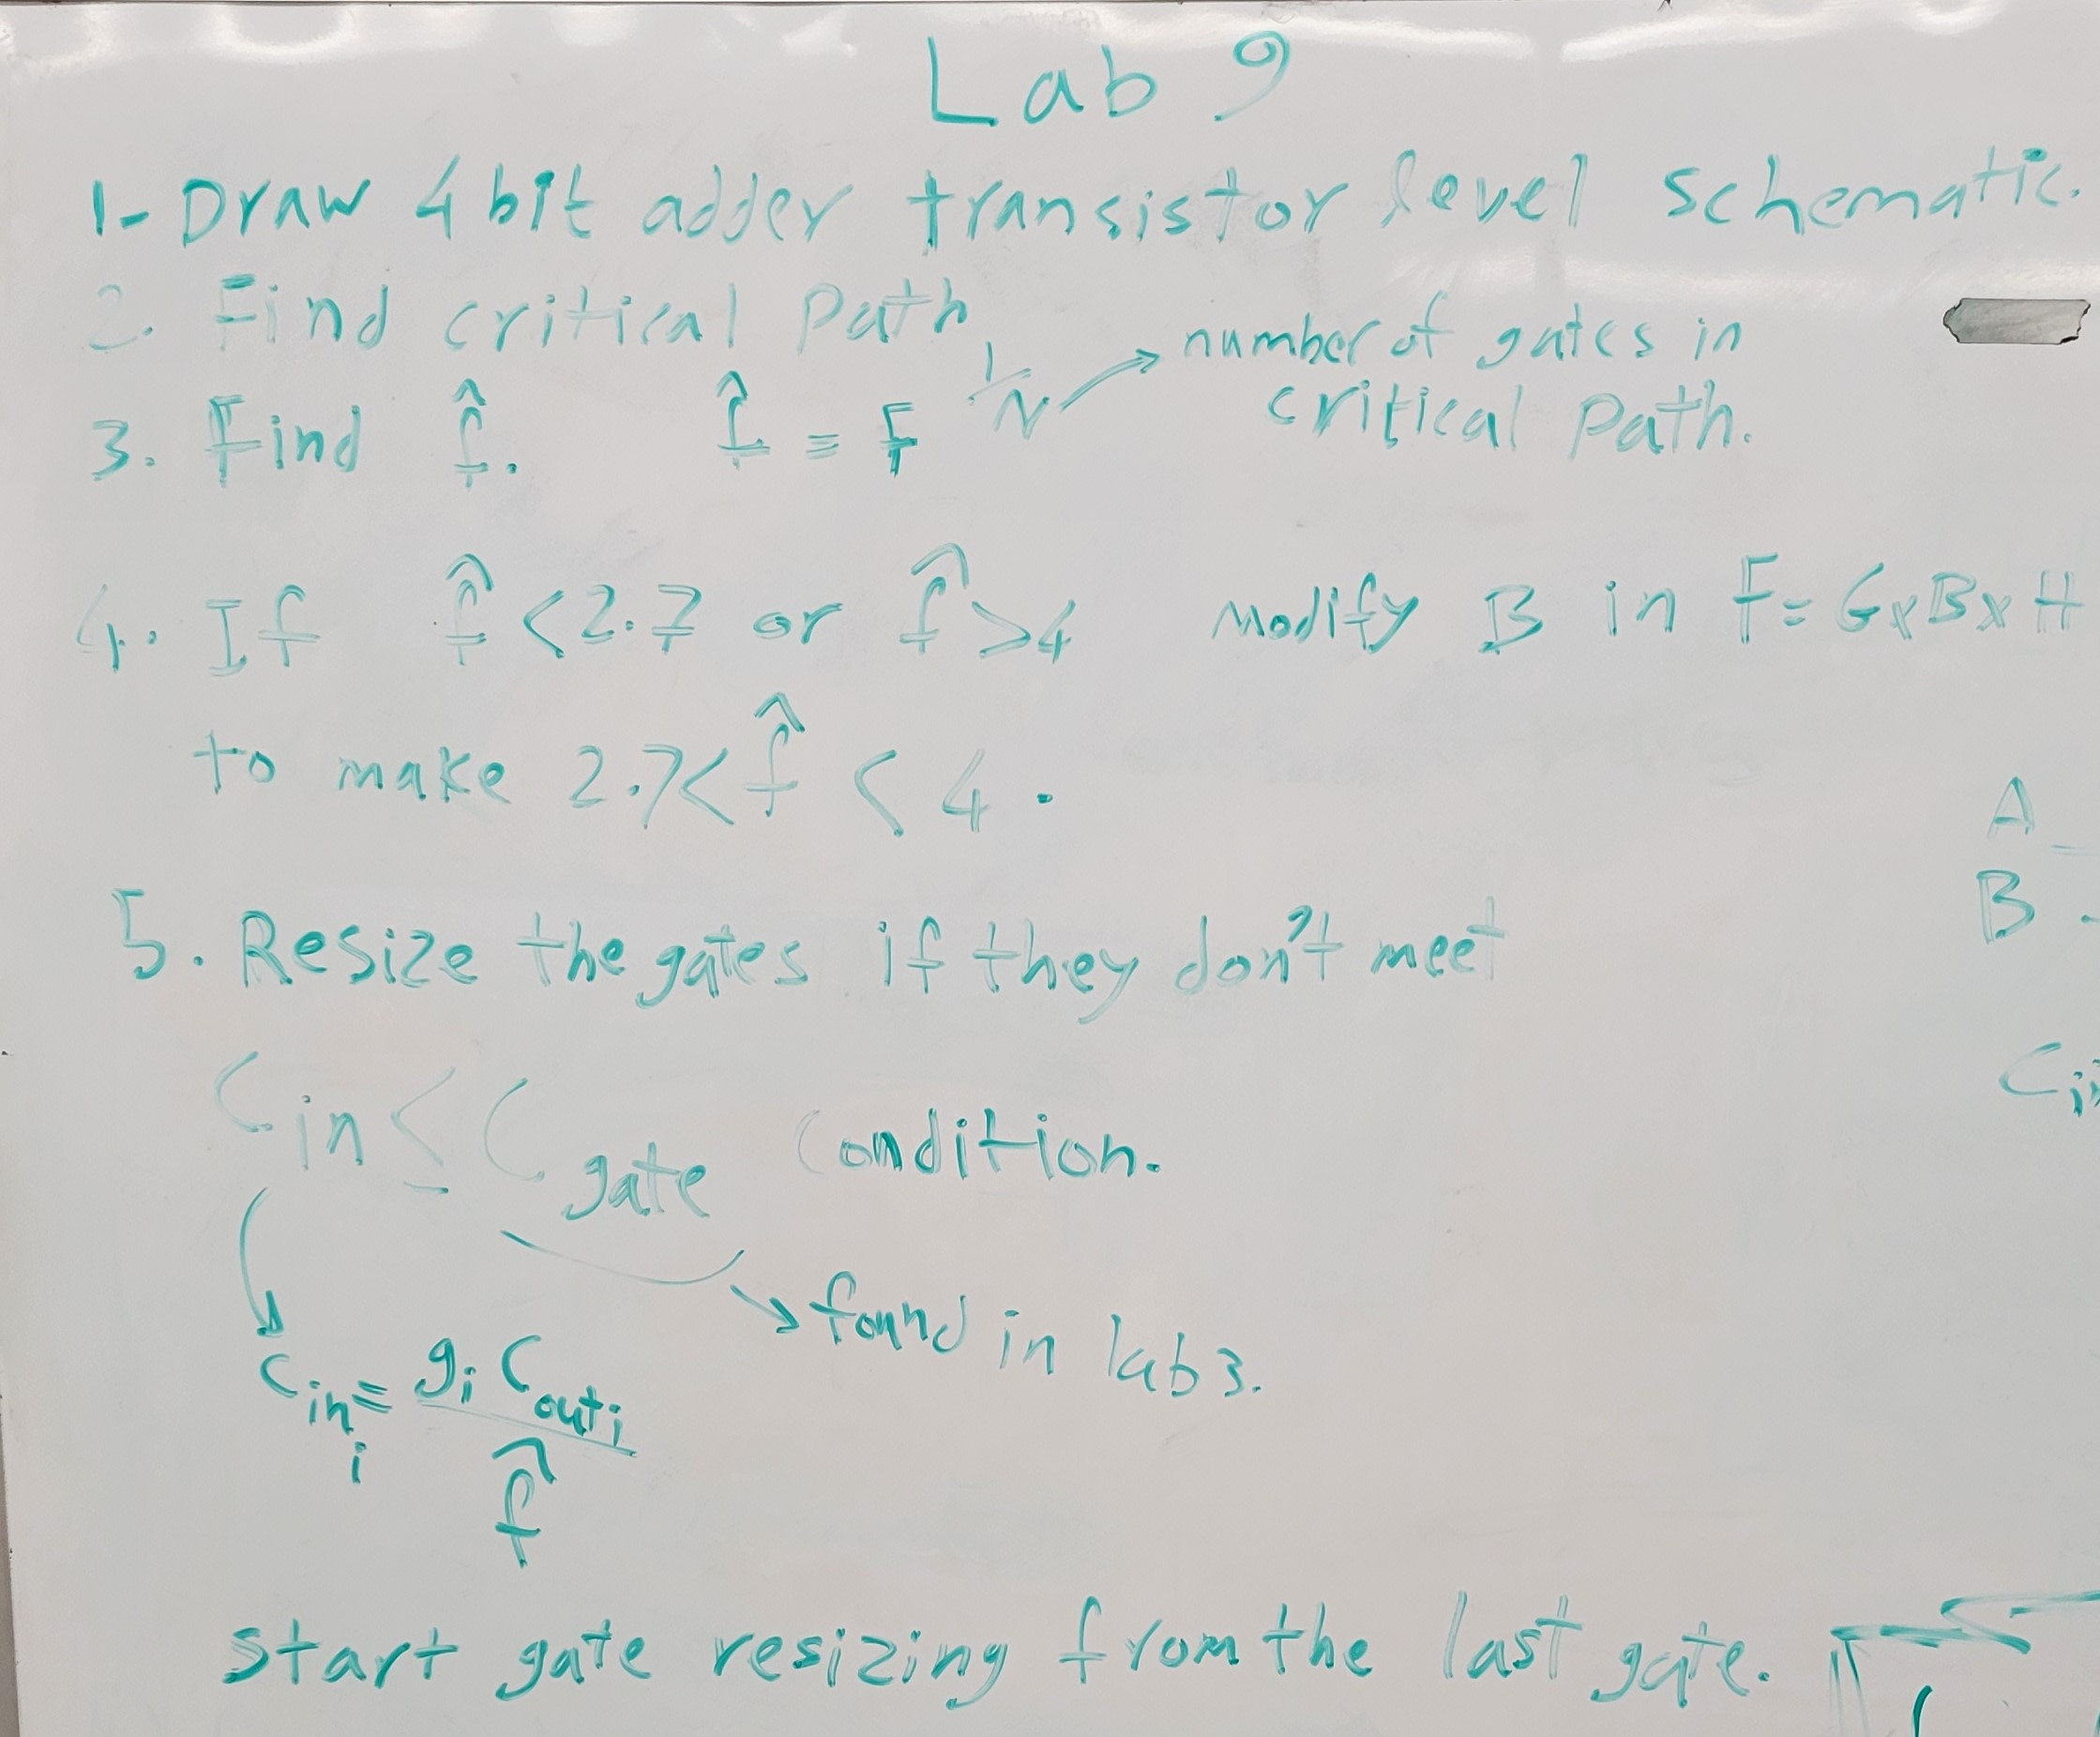 Lab 9
1- Draw 4 bit adder transistor level schematic.
2. Find critical Path
3. Find f̂. f̂ = F^1/N → number of gates in
critical Path.
4. If f̂ < 2.7 or f̂ > 4 Modify B in F = G x B x H
to make 2.7 < f̂ < 4.
A
B
5. Resize the gates if they don't meet
Cin ≤ Cgate condition.
Cin
found in lab 3.
Cin i = gi Cout i / f̂
start gate resizing from the last gate.